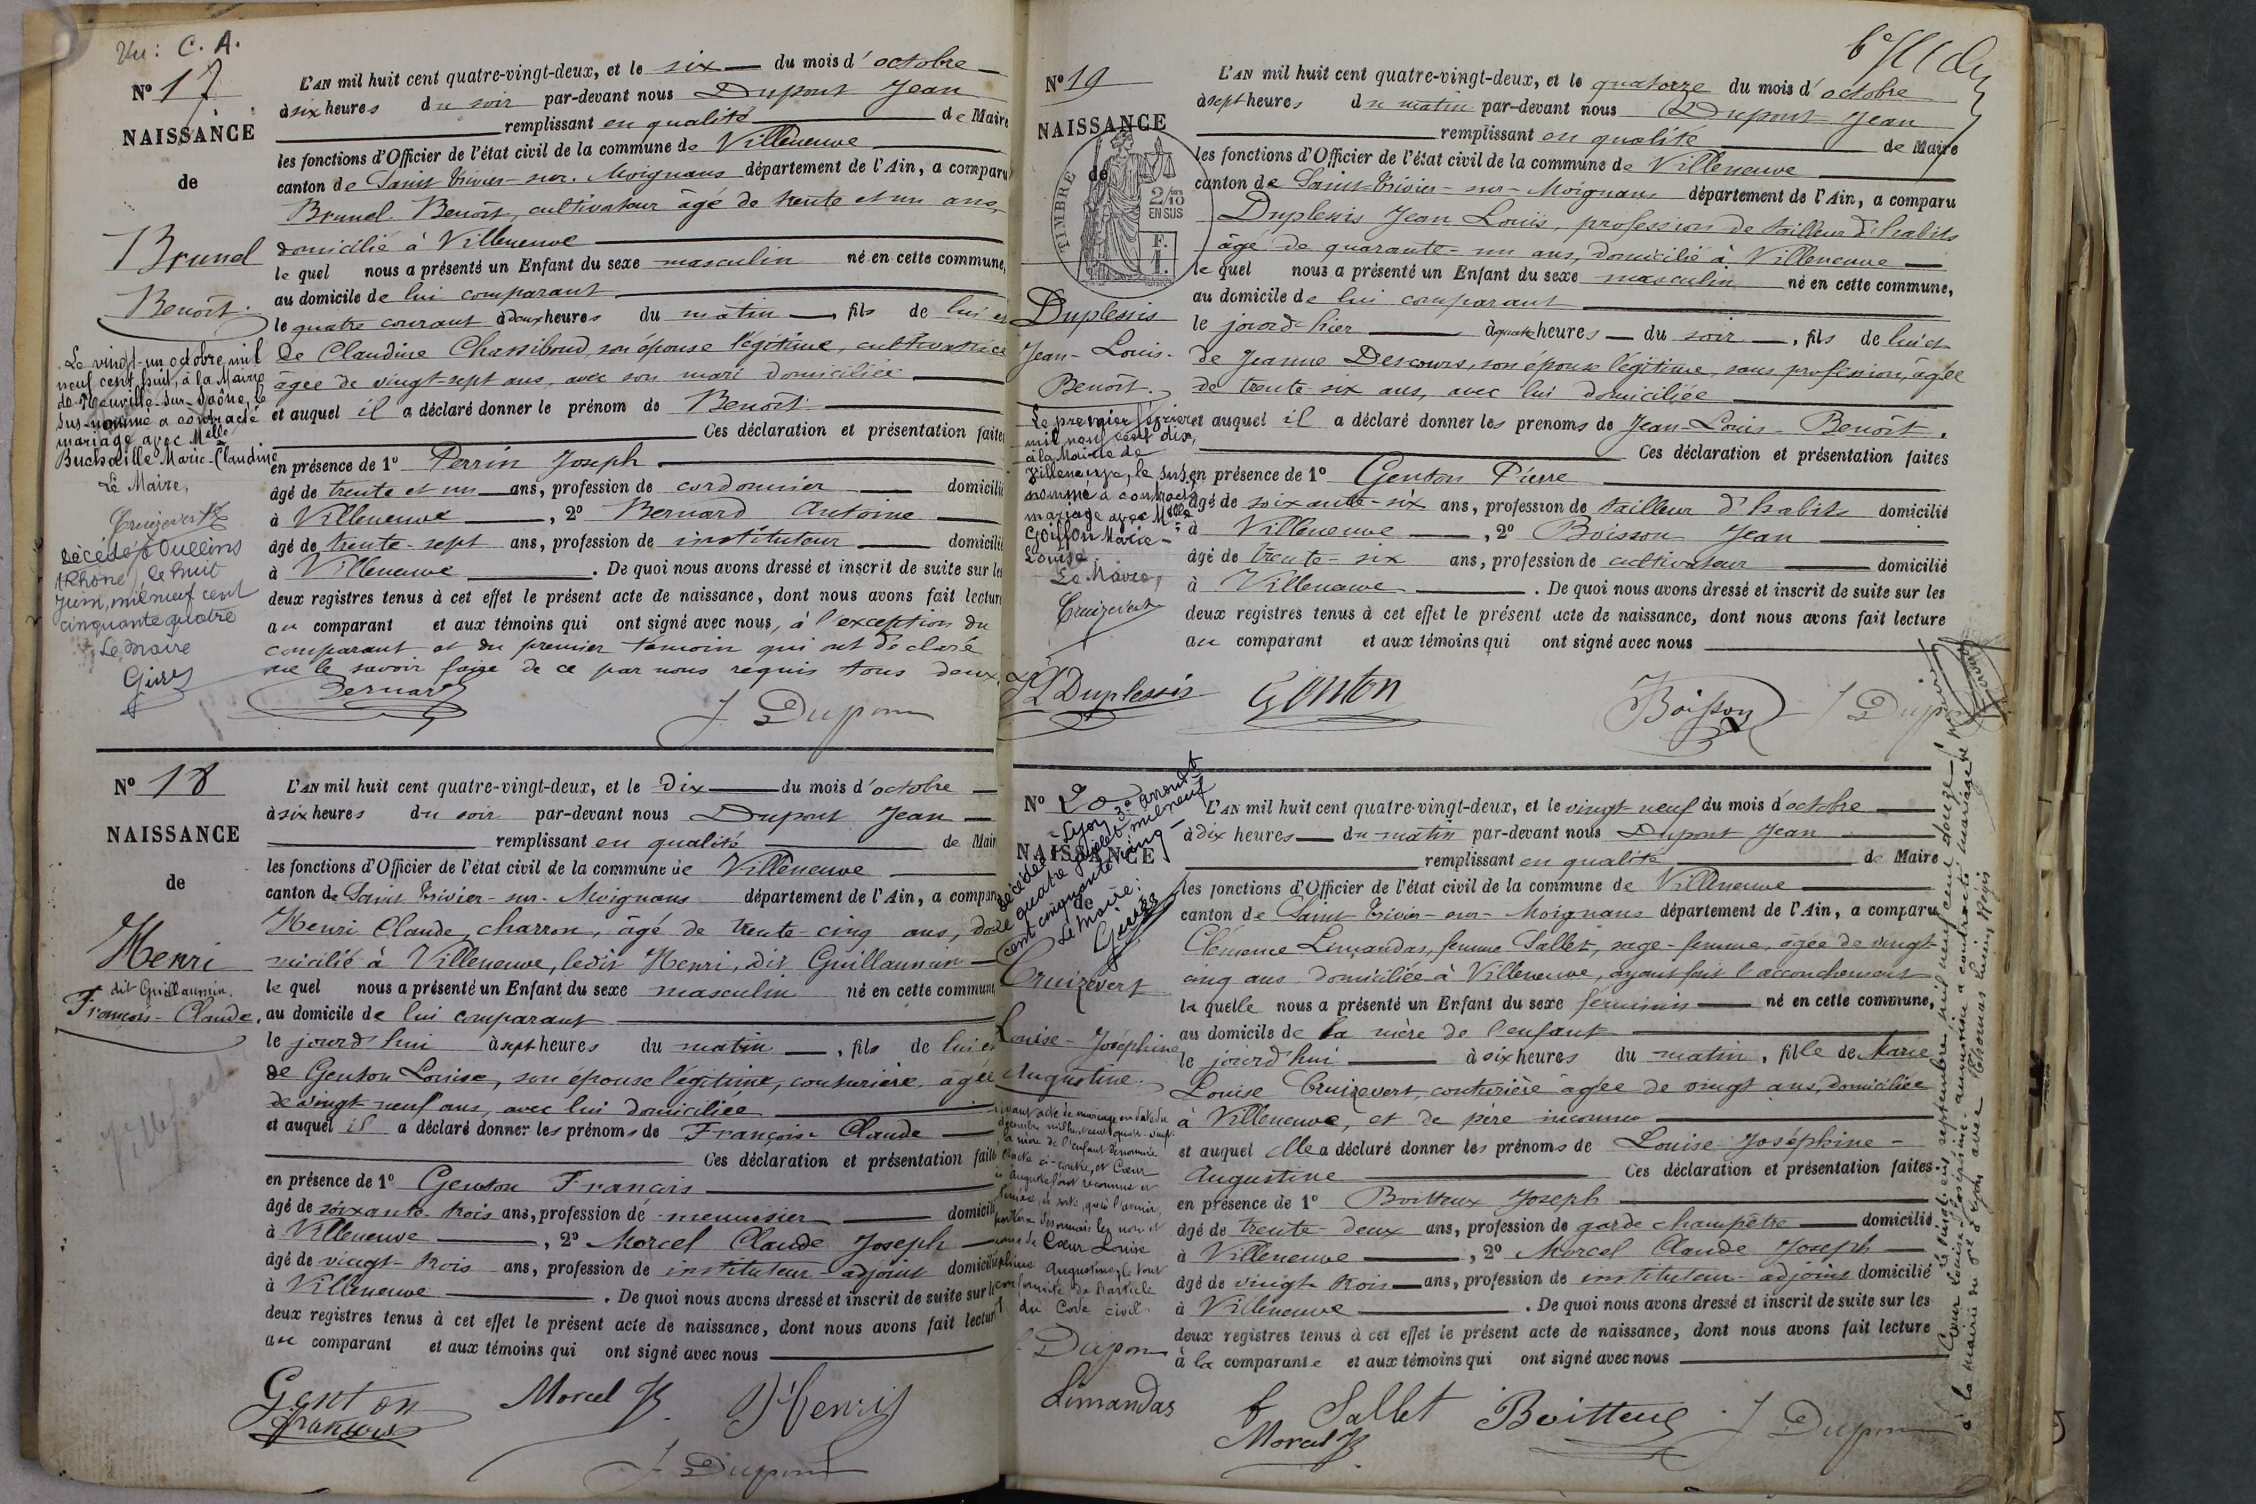 Vu: C. A.
Nº 17
NAISSANCE
de
Brunel
Benoit
Le vingt-un octobre mil
neuf cent huit, à la Mairie
de Neuville-sur-Saône, le
sus-nommé a contracté
mariage avec Melle
Buchaille Marie-Claudine
Le Maire,
Cruizevert
Décédé à Oullins
(Rhône) le huit
Juin, mil neuf cent
cinquante quatre
Le Maire
L'AN mil huit cent quatre-vingt-deux, et le six du mois d'octobre
à six heures du soir par-devant nous Dupont Jean
remplissant en qualité de Maire
les fonctions d'Officier de l'état civil de la commune de Villeneuve
canton de Saint Trivier-sur-Moignans département de l'Ain, a comparu
Brunel Benoît, cultivateur âgé de trente et un ans,
domicilié à Villeneuve
le quel nous a présenté un Enfant du sexe masculin né en cette commune,
au domicile de lui comparant
le quatre courant à deux heures du matin, fils de lui et
de Claudine Chassiboud, son épouse légitime, cultivatrice
âgée de vingt-sept ans, avec son mari domiciliée
et auquel il a déclaré donner le prénom de Benoît
Ces déclaration et présentation faites
en présence de 1º Perrin Joseph
âgé de trente et un ans, profession de cordonnier domicilié
à Villeneuve, 2º Bernard Antoine
âgé de trente-sept ans, profession de instituteur domicilié
à Villeneuve. De quoi nous avons dressé et inscrit de suite sur les
deux registres tenus à cet effet le présent acte de naissance, dont nous avons fait lecture
au comparant et aux témoins qui ont signé avec nous, à l'exception du
comparant et du premier témoin qui ont déclaré
ne le savoir faire de ce par nous requis tous deux.
Bernard
J Dupont
Nº 18
NAISSANCE
de
Henri
dit Guillaumin
François-Claude.
L'AN mil huit cent quatre-vingt-deux, et le dix du mois d'octobre
à six heures du soir par-devant nous Dupont Jean
remplissant en qualité de Maire
les fonctions d'Officier de l'état civil de la commune de Villeneuve
canton de Saint Trivier-sur-Moignans département de l'Ain, a comparu
Henri Claude, charron, âgé de trente-cinq ans, do
micilié à Villeneuve, ledit Henri, dit Guillaumin
le quel nous a présenté un Enfant du sexe masculin né en cette commune,
au domicile de lui comparant
le jourd'hui à sept heures du matin, fils de lui et
de Genton Louise, son épouse légitime, couturière, âgée
de vingt-neuf ans, avec lui domiciliée
et auquel il a déclaré donner les prénoms de François-Claude
Ces déclaration et présentation faites
en présence de 1º Genton François
âgé de soixante-trois ans, profession de menuisier domicilié
à Villeneuve, 2º Morcel Claude Joseph
âgé de vingt-trois ans, profession de instituteur-adjoint domicilié
à Villeneuve. De quoi nous avons dressé et inscrit de suite sur les
deux registres tenus à cet effet le présent acte de naissance, dont nous avons fait lecture
au comparant et aux témoins qui ont signé avec nous
Genton
François
Morcel
Henri
J Dupont
Nº 19
NAISSANCE
de
TIMBRE
2/10
EN SUS
Duplessis
Jean-Louis-
Benoît.
Le premier février
mil neuf cent dix,
à la Mairie de
Villeneuve, le sus
nommé a contracté
mariage avec Melle
Goiffon Marie-
Louise
Le Maire,
Cruizevert
L'AN mil huit cent quatre-vingt-deux, et le quatorze du mois d'octobre
à sept heures du matin par-devant nous Dupont Jean
remplissant en qualité de Maire
les fonctions d'Officier de l'état civil de la commune de Villeneuve
canton de Saint-Trivier-sur-Moignans département de l'Ain, a comparu
Duplessis Jean Louis, profession de tailleur d'habits
âgé de quarante-un ans, domicilié à Villeneuve
le quel nous a présenté un Enfant du sexe masculin né en cette commune,
au domicile de lui comparant
le jourd'hier à quatre heures du soir, fils de lui et
de Jeanne Descours, son épouse légitime, sans profession, âgée
de trente-six ans, avec lui domiciliée
et auquel il a déclaré donner les prenoms de Jean-Louis-Benoît.
Ces déclaration et présentation faites
en présence de 1º Genton Pierre
âgé de soixante-six ans, profession de tailleur d'habits domicilié
à Villeneuve, 2º Boisson Jean
âgé de trente-six ans, profession de cultivateur domicilié
à Villeneuve. De quoi nous avons dressé et inscrit de suite sur les
deux registres tenus à cet effet le présent acte de naissance, dont nous avons fait lecture
au comparant et aux témoins qui ont signé avec nous
JL Duplessis
Genton
Boisson
J Dupont
Nº 20
NAISSANCE
de
Décédée à Lyon 3e arrondt
le quatre juillet mil neuf
cent cinquante cinq
Le Maire:
Cruizevert
Louise-Joséphine
Augustine.
L'AN mil huit cent quatre-vingt-deux, et le vingt neuf du mois d'octobre
à dix heures du matin par-devant nous Dupont Jean
remplissant en qualité de Maire
les fonctions d'Officier de l'état civil de la commune de Villeneuve
canton de Saint Trivier-sur-Moignans département de l'Ain, a comparu
Clémence Limandas, femme Sallet, sage-femme, âgée de vingt
cinq ans domiciliée à Villeneuve, ayant fait l'accouchement
la quelle nous a présenté un Enfant du sexe féminin né en cette commune,
au domicile de la mère de l'enfant
le jourd'hui à six heures du matin, fille de Marie
Louise Cruizevert, couturière âgée de vingt ans, domiciliée
à Villeneuve, et de père inconnu
et auquel elle a déclaré donner les prénoms de Louise-Joséphine-
Augustine
Ces déclaration et présentation faites
en présence de 1º Boitteux Joseph
âgé de trente-deux ans, profession de garde champêtre domicilié
à Villeneuve, 2º Morcel Claude Joseph
âgé de vingt trois ans, profession de instituteur-adjoint domicilié
à Villeneuve. De quoi nous avons dressé et inscrit de suite sur les
deux registres tenus à cet effet le présent acte de naissance, dont nous avons fait lecture
à la comparante et aux témoins qui ont signé avec nous
Dupont
Limandas
f Sallet
Boitteux
J Dupont
Morcel